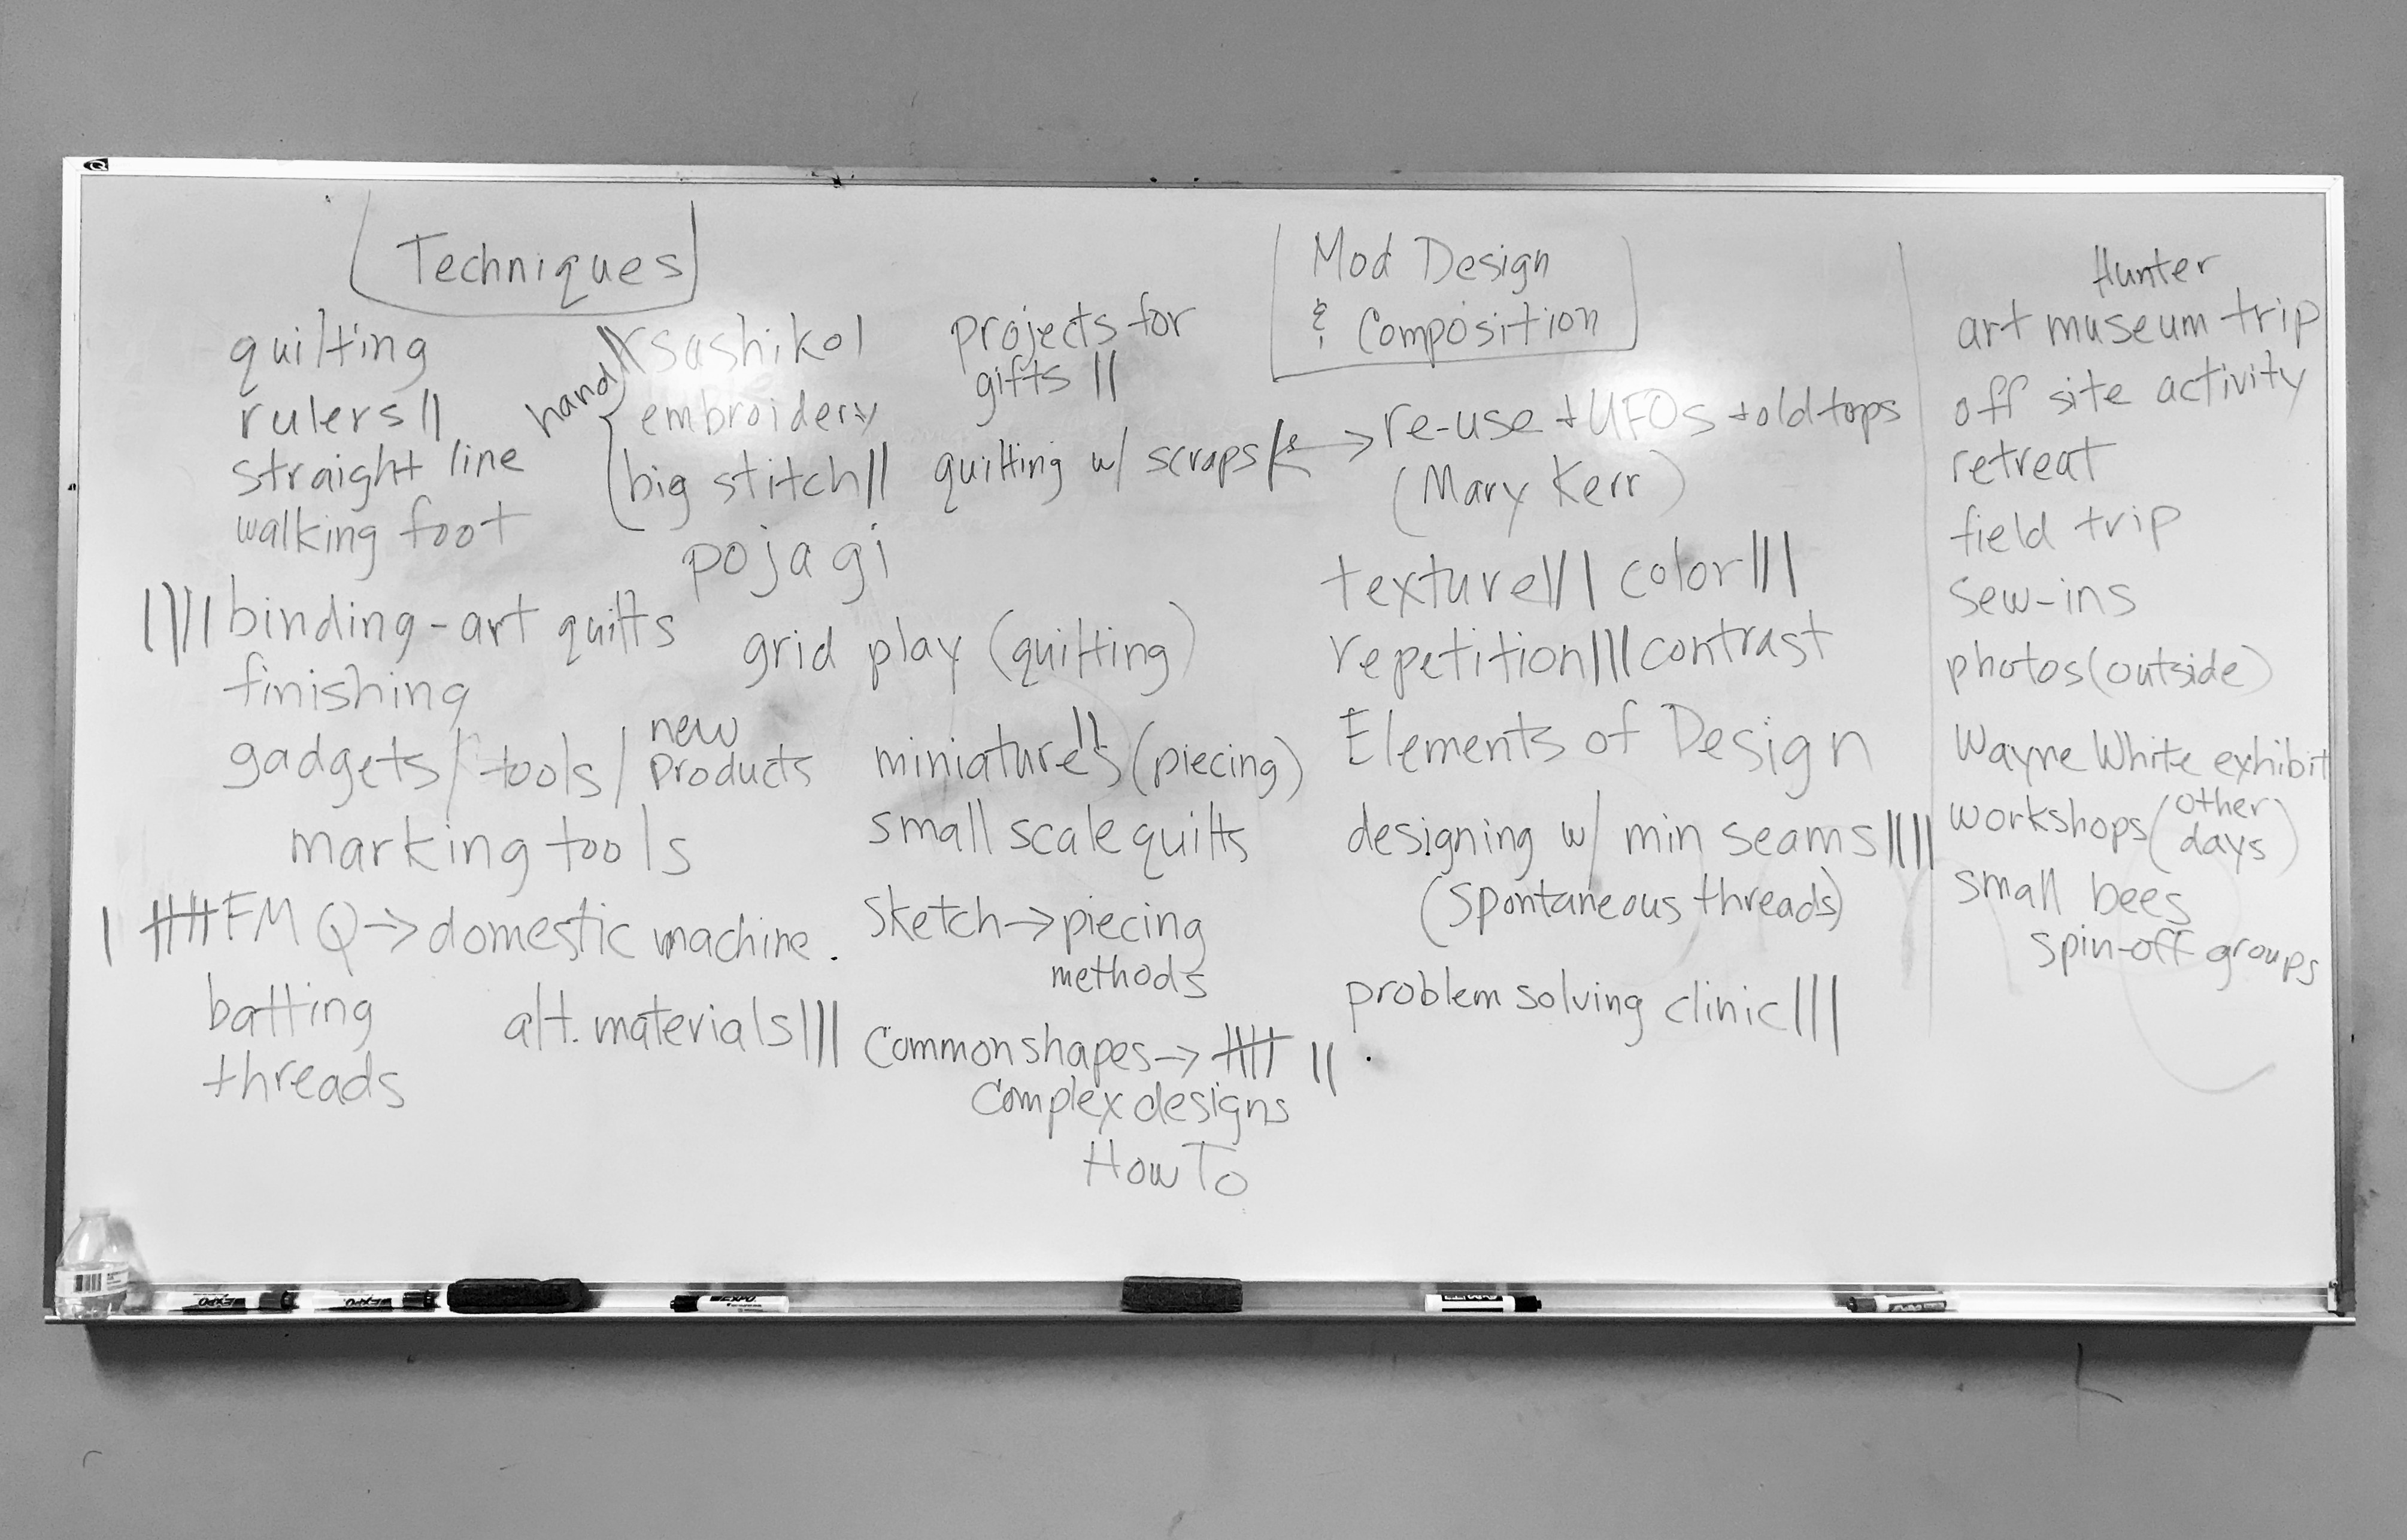 Techniques
quilting
rulers ||
straight line
walking foot
|||| binding - art quilts
finishing
gadgets / tools / new products
marking tools
| 卌 FMQ → domestic machine.
batting
threads
alt. materials |||
hand
sashiko |
embroidery
big stitch ||
pojagi
grid play (quilting)
projects for
gifts ||
quilting w/ scraps
miniatures || (piecing)
small scale quilts
sketch → piecing
methods
Common shapes → 卌 ||
Complex designs
How To
Mod Design
& Composition
re-use + UFOs + old tops
(Mary Kerr)
texture ||| color |||
repetition ||| contrast
Elements of Design
designing w/ min seams ||||
(spontaneous threads)
problem solving clinic |||
Hunter
art museum trip
off site activity
retreat
field trip
sew-ins
photos (outside)
Wayne White exhibit
workshops (other days)
small bees
spin-off groups
EXPO
EXPO